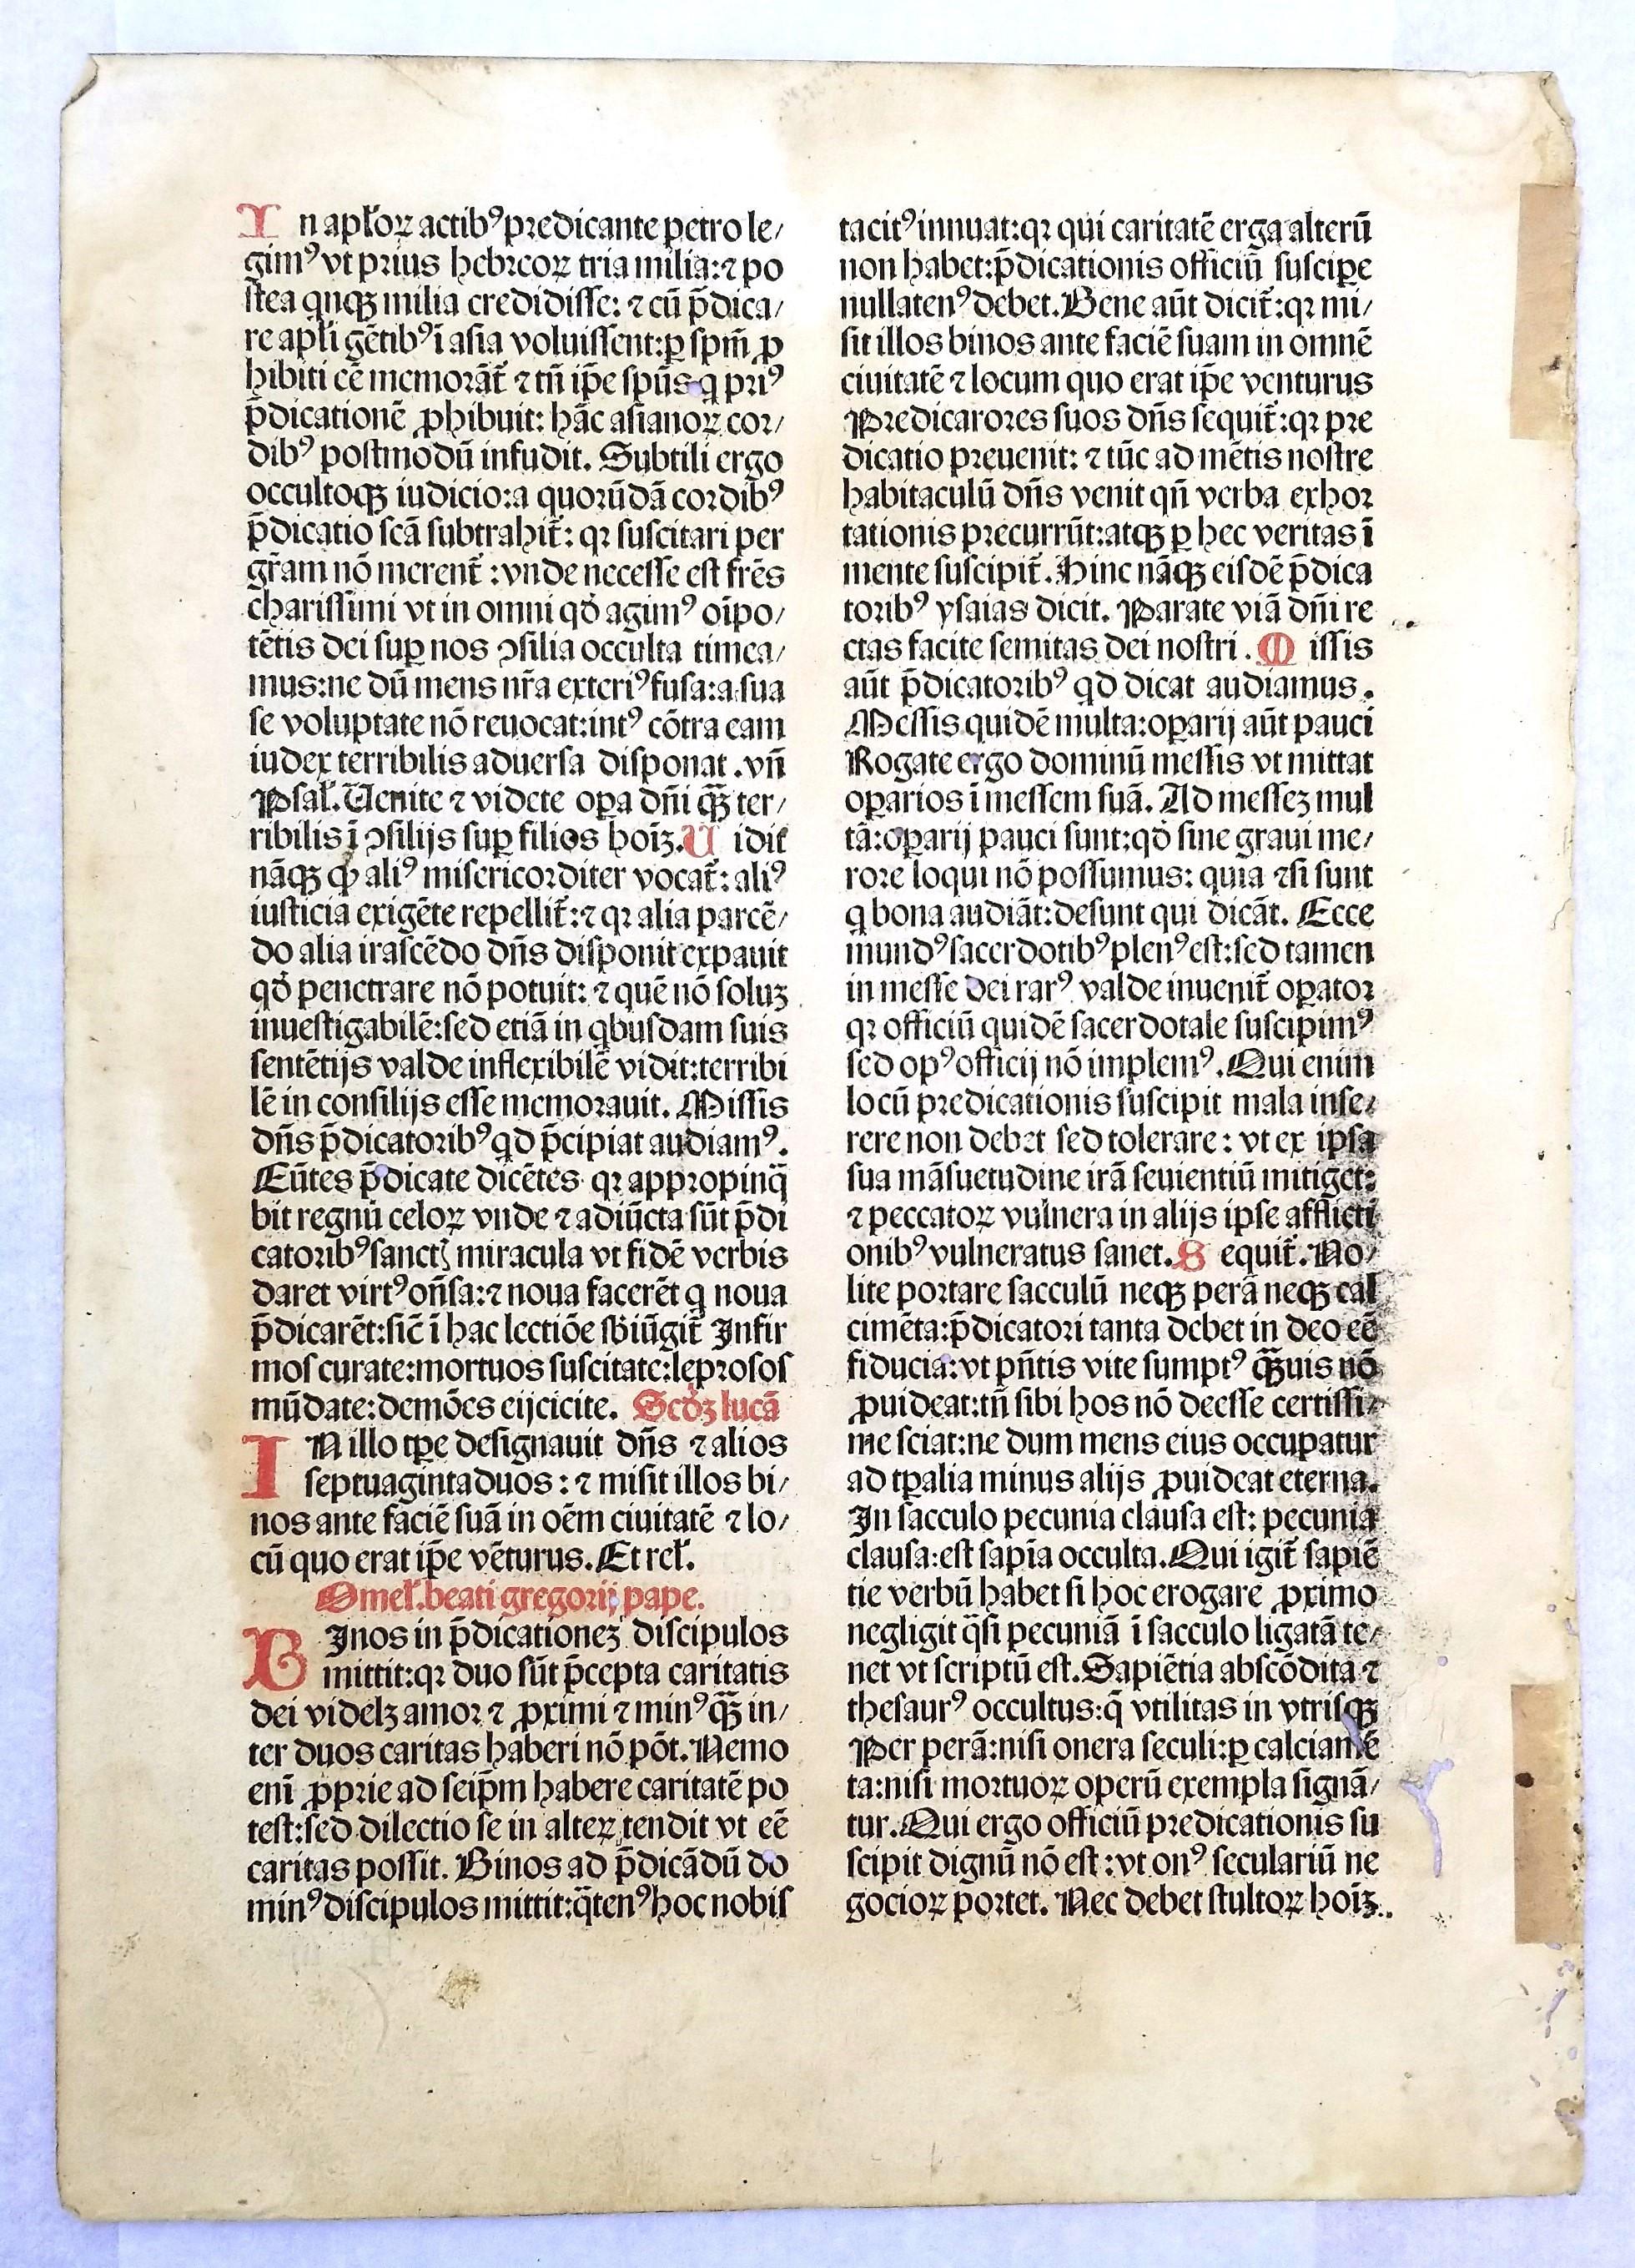 In apƚoꝝ actibꝰ predicante petro le/
gimꝰ vt prius hebreoꝝ tria milia: ⁊ po
ſtea qnqꝫ milia credidiſſe: ⁊ cū p̄dica/
re apƚi gētibꝰ ī aſia voluiſſent: ꝑ ſpm̄ ꝓ
hibiti eē memorāt̄ ⁊ tn̄ ip̄e ſpūs q priꝰ
p̄dicationē ꝓhibuit: hāc aſianoꝝ cor/
dibꝰ poſtmodū infudit. Subtili ergo
occultoqꝫ iudicio: a quorūdā cordibꝰ
p̄dicatio ſcā ſubtrahit̄: qꝛ ſuſcitari per
gr̄am nō merent̄: vnde neceſſe est fr̄es
chariſſimi vt in omni qđ agimꝰ oīpo/
tētis dei ſuꝑ nos ꝯſilia occulta timea/
mus: ne dū mens nr̄a exteriꝰ fuſa: a ſua
ſe voluptate nō reuocat: intꝰ cōtra eam
iudex terribilis aduerſa diſponat. vn̄
Pſaƚ. Uenite ⁊ videte oꝑa dn̄i qꝫ̄ ter/
ribilis ī ꝯſilijs ſuꝑ filios hoīꝫ. U idit
nāqꝫ ꝙ aliꝰ miſericorditer vocat̄: aliꝰ
iuſticia exigēte repellit̄: ⁊ qꝛ alia parcē/
do alia iraſcēdo dn̄s diſponit expauit
qđ penetrare nō potuit: ⁊ quē nō ſoluꝫ
inueſtigabilē: ſed etiā in qbuſdam ſuis
ſentētijs valde inflexibilē vidit: terribi
lē in conſilijs eſſe memorauit. Miſſis
dn̄s p̄dicatoribꝰ qd p̄cipiat audiamꝰ.
Eūtes p̄dicate dicētes qꝛ appropinq̄
bit regnū celoꝝ vnde ⁊ adiūcta ſūt p̄di
catoribꝰ ſanctꝭ miracula vt fidē verbis
daret virtꝰ on̄ſa: ⁊ noua facerēt q noua
p̄dicarēt: ſic̄ ī hac lectiōe ſbiūgit̄ Infir
moſ curate: mortuos ſuſcitate: leproſoſ
mūdate: demōes eijcicite. Scđꝫ lucā
IN illo tꝑe deſignauit dn̄s ⁊ alios
ſeptuagintaduos: ⁊ miſit illos bi/
nos ante faciē ſuā in oēm ciuitatē ⁊ lo/
cū quo erat ip̄e vēturus. Et reƚ.
Omeƚ. beati gregorij pape.
BInos in p̄dicationeꝫ diſcipulos
mittit: qꝛ duo ſūt p̄cepta caritatis
dei videlꝫ amor ⁊ ꝓximi ⁊ minꝰ qꝫ̄ in/
ter duos caritas haberi nō pōt. Nemo
enī ꝓprie ad ſeip̄m habere caritatē po
teſt: ſed dilectio ſe in alteꝝ tendit vt eē
caritas poſſit. Binos ad p̄dicādū do
minꝰ diſcipulos mittit: q̄tenꝰ hoc nobiſ
tacitꝰ innuat: qꝛ qui caritatē erga alterū
non habet: p̄dicationis officiū ſuſciꝑe
nullatenꝰ debet. Bene aūt dicit̄: qꝛ mi/
ſit illos binos ante faciē ſuam in omnē
ciuitatē ⁊ locum quo erat ip̄e venturus
Predicarores ſuos dn̄s ſequit̄: qꝛ pre
dicatio preuenit: ⁊ tūc ad mētis noſtre
habitaculū dn̄s venit qn̄ verba exhor
tationis precurrūt: atqꝫ ꝑ hec veritas ī
mente ſuſcipit̄. Hinc nāqꝫ eiſdē p̄dica
toribꝰ yſaias dicit. Parate viā dn̄i re
ctas facite ſemitas dei noſtri. M iſſis
aūt p̄dicatoribꝰ qd dicat audiamus.
Meſſis quidē multa: oꝑarij aūt pauci
Rogate ergo dominū meſſis vt mittat
oꝑarios ī meſſem ſuā. Ad meſſeꝫ mul
tā: oꝑarij pauci ſunt: qđ ſine graui me/
rore loqui nō poſſumus: quia ⁊ſi ſunt
q bona audiāt: deſunt qui dicāt. Ecce
mundꝰ ſacerdotibꝰ plenꝰ eſt: ſed tamen
in meſſe dei rarꝰ valde inuenit̄ oꝑator
qꝛ officiū quidē ſacerdotale ſuſcipimꝰ
ſed opꝰ officij nō implemꝰ. Qui enim
locū predicationis ſuſcipit mala inſe/
rere non debet ſed tolerare: vt ex ipſa
ſua māſuetudine irā ſeuientiū mitiget:
⁊ peccatoꝝ vulnera in alijs ipſe afflicti
onibꝰ vulneratus ſanet. S equit̄. No/
lite portare ſacculū neqꝫ perā neqꝫ cal
cimēta: p̄dicatori tanta debet in deo eē
fiducia: vt pn̄tis vite ſumptꝰ qꝫ̄uis nō
ꝓuideat: tn̄ ſibi hos nō deeſſe certiſſi/
me ſciat: ne dum mens eius occupatur
ad tꝑalia minus alijs ꝓuideat eterna.
In ſacculo pecunia clauſa eſt: pecunia
clauſa: eſt ſapīa occulta. Qui igit̄ ſapiē
tie verbū habet ſi hoc erogare ꝓximo
negligit q̄ſi pecuniā ī ſacculo ligatā te/
net vt ſcriptū eſt. Sapiētia abſcōdita ⁊
theſaurꝰ occultus: q̄ vtilitas in vtriſqꝫ
Per perā: niſi onera ſeculi: ꝑ calciamē
ta: niſi mortuoꝝ operū exempla ſignā/
tur. Qui ergo officiū predicationis ſu
ſcipit dignū nō eſt: vt onꝰ ſeculariū ne
gocioꝝ portet. Nec debet ſtultoꝝ hoīꝫ.